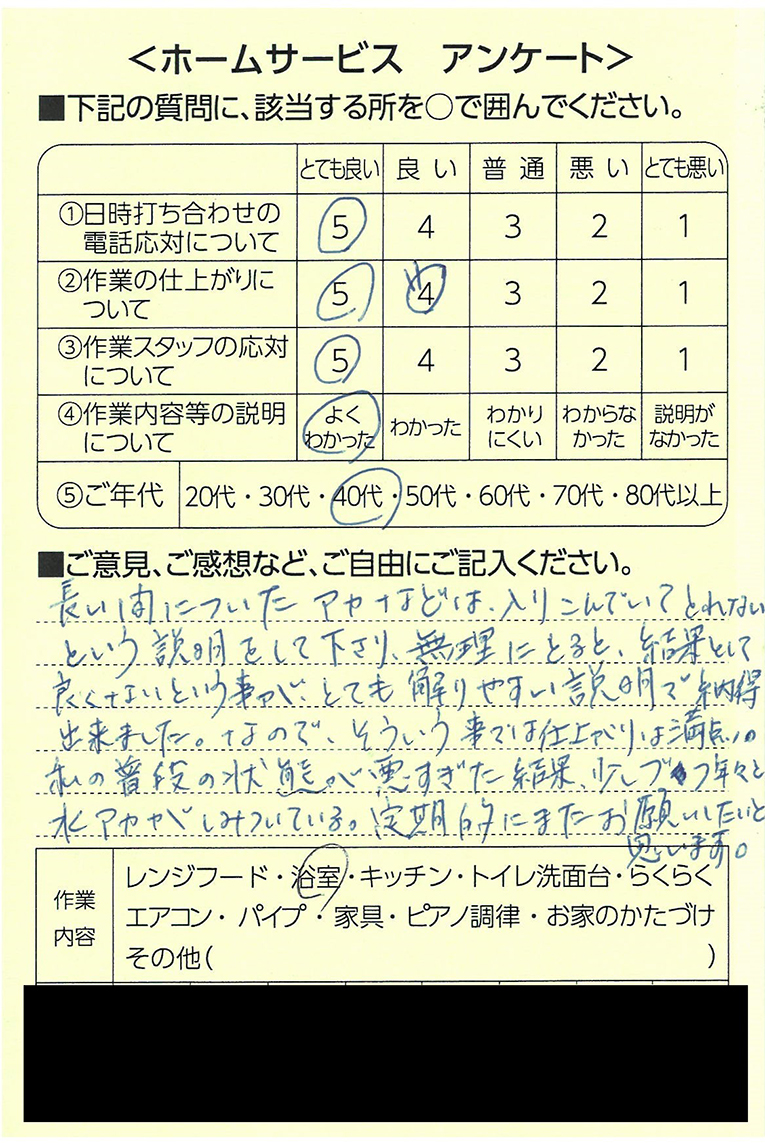 ＜ホームサービス　アンケート＞
■下記の質問に、該当する所を○で囲んでください。
とても良い 良い 普通 悪い とても悪い
①日時打ち合わせの電話応対について 5 4 3 2 1
②作業の仕上がりについて 5 4 3 2 1
③作業スタッフの応対について 5 4 3 2 1
④作業内容等の説明について よくわかった わかった わかりにくい わからなかった 説明がなかった
⑤ご年代 20代・30代・40代・50代・60代・70代・80代以上
■ご意見、ご感想など、ご自由にご記入ください。
長い間についたアカなどは、入りこんでいてとれない
という説明をして下さり、無理にとると、結果として
良くないという事が、とても解りやすい説明で納得
出来ました。なので、そういう事では仕上がりは満点！。
私の普段の状態が悪すぎた結果、少しづつ年々と
水アカがしみついている。定期的にまたお願いしたいと
思います。
作業内容
レンジフード・浴室・キッチン・トイレ洗面台・らくらく
エアコン・パイプ・家具・ピアノ調律・お家のかたづけ
その他（　　　）